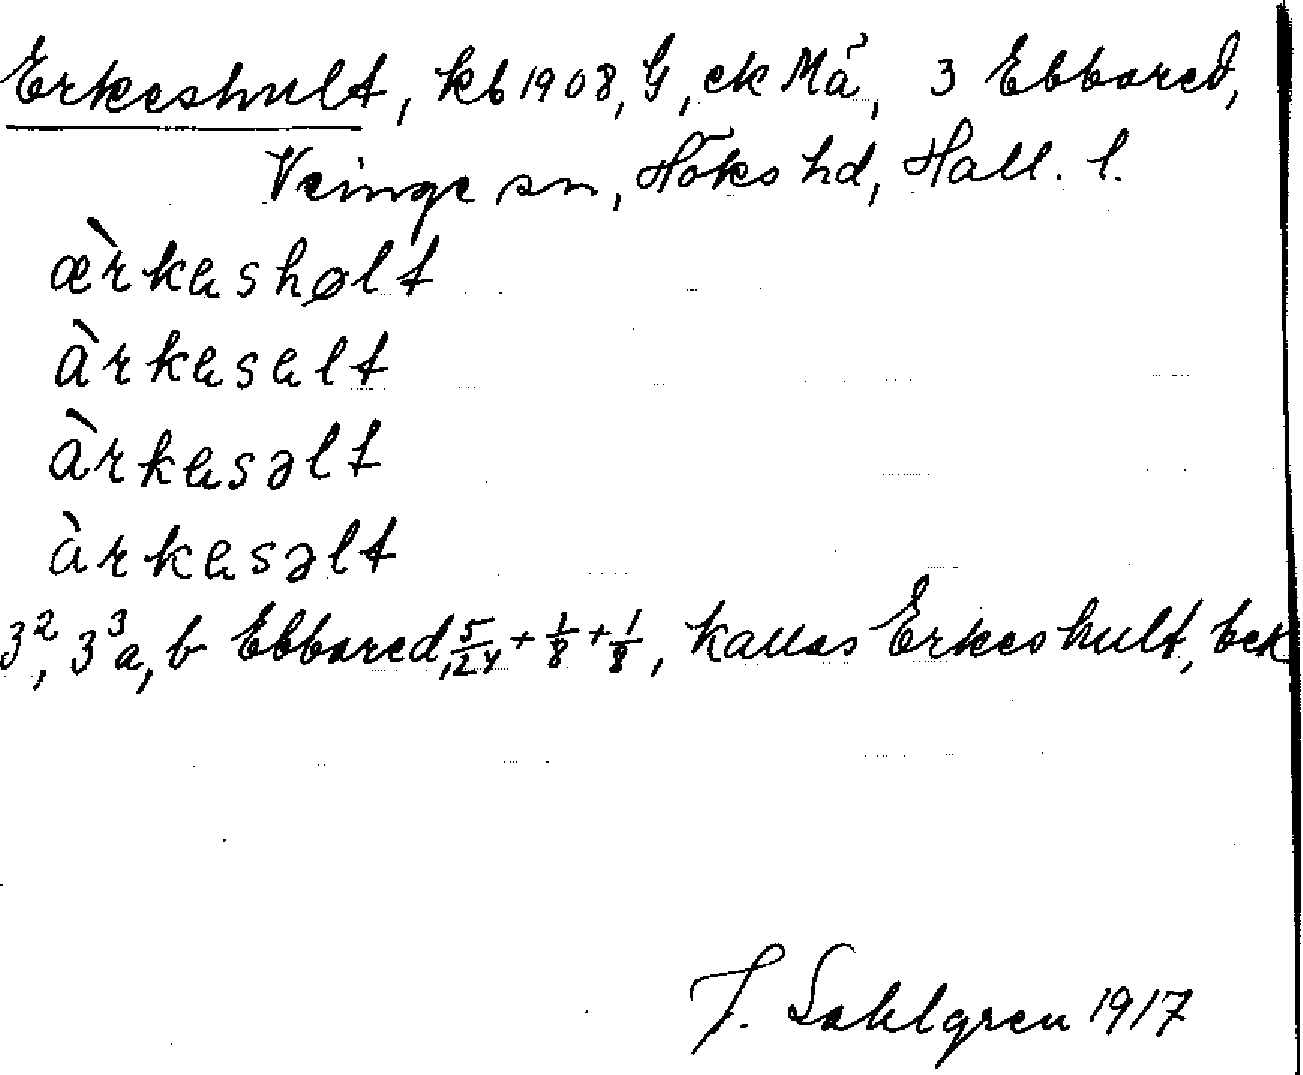 Erkeshult, kb 1908, G, ek Må, 3 Ebbared,
Veinge sn, Höks hd, Hall. l.
æ̀rkashølt
àrkasalt
àrkasəlt
àrkasəlt
3², 3³a, b Ebbared, 5/24 + 1/8 + 1/8, kallas Erkeshult, bek
J. Sahlgren 1917